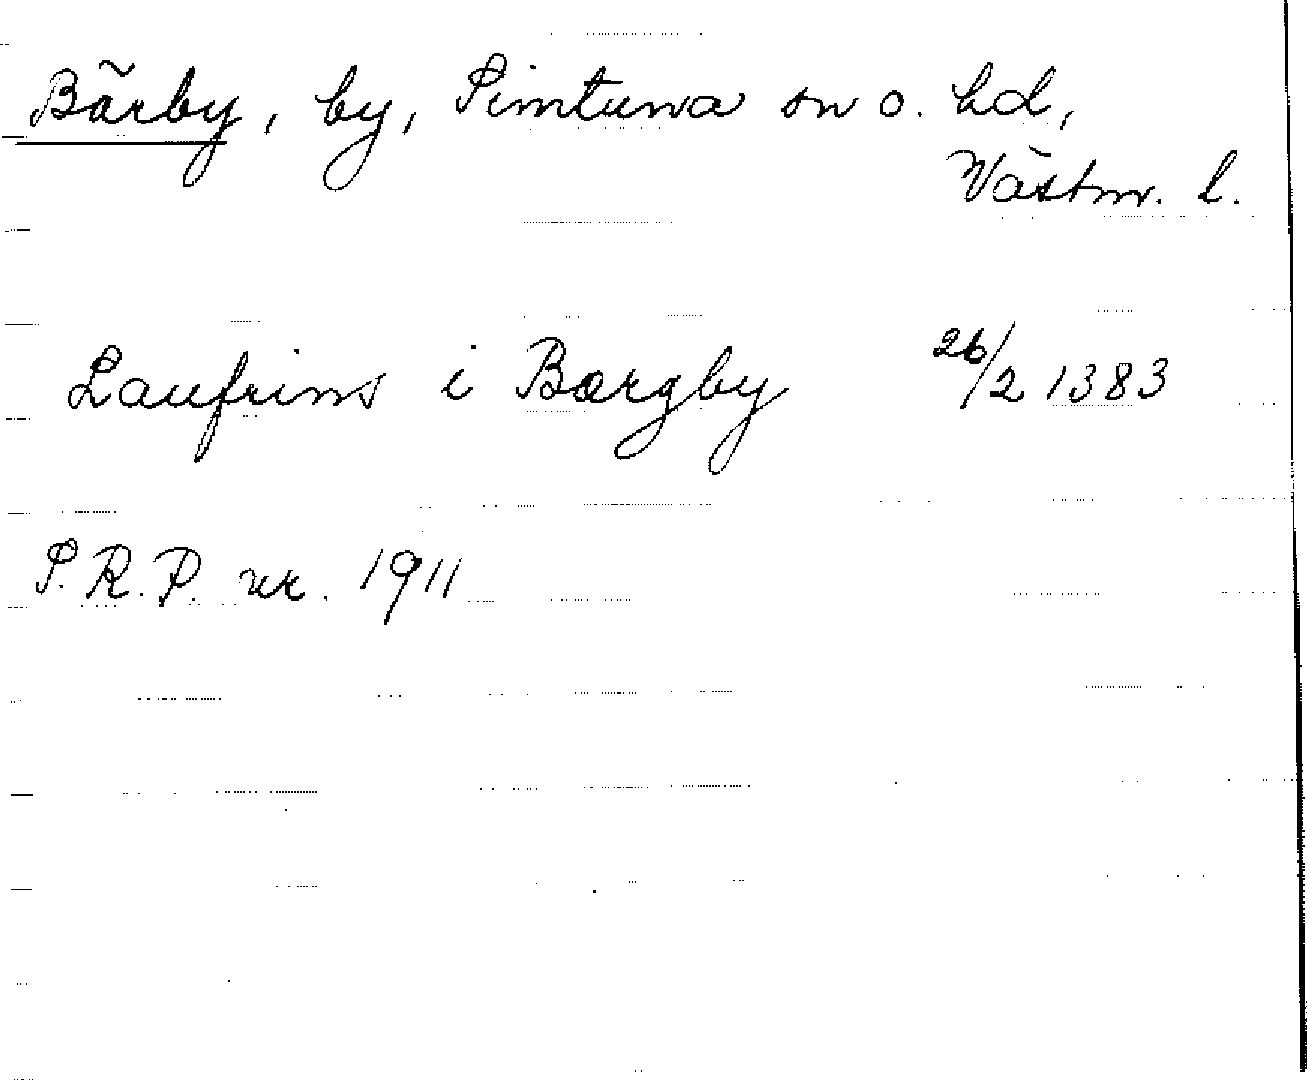 Bärby, by, Simtuna sn o. hd,
Västm. l.
Laufrins i Bærgby 26/2 1383
S.R.P. nr. 1911